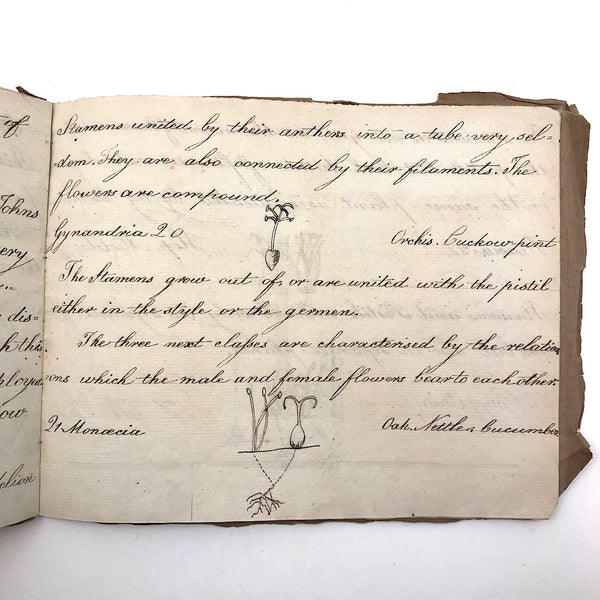 of
Johns
ery
dis=
h this
ploy'd
ow
delion
Stamens united by their anthers into a tube very sel=
=dom. They are also connected by their filaments. The
flowers are compound.
Gynandria 20 Orchis. Cuckow pint
The Stamens grow out of, or are united with the pistil
either in the style or the germen.
The three next claſses are characterised by the relation
=ons which the male and female flowers bear to each other.
21 Monœcia Oak. Nettle. Cucumber.